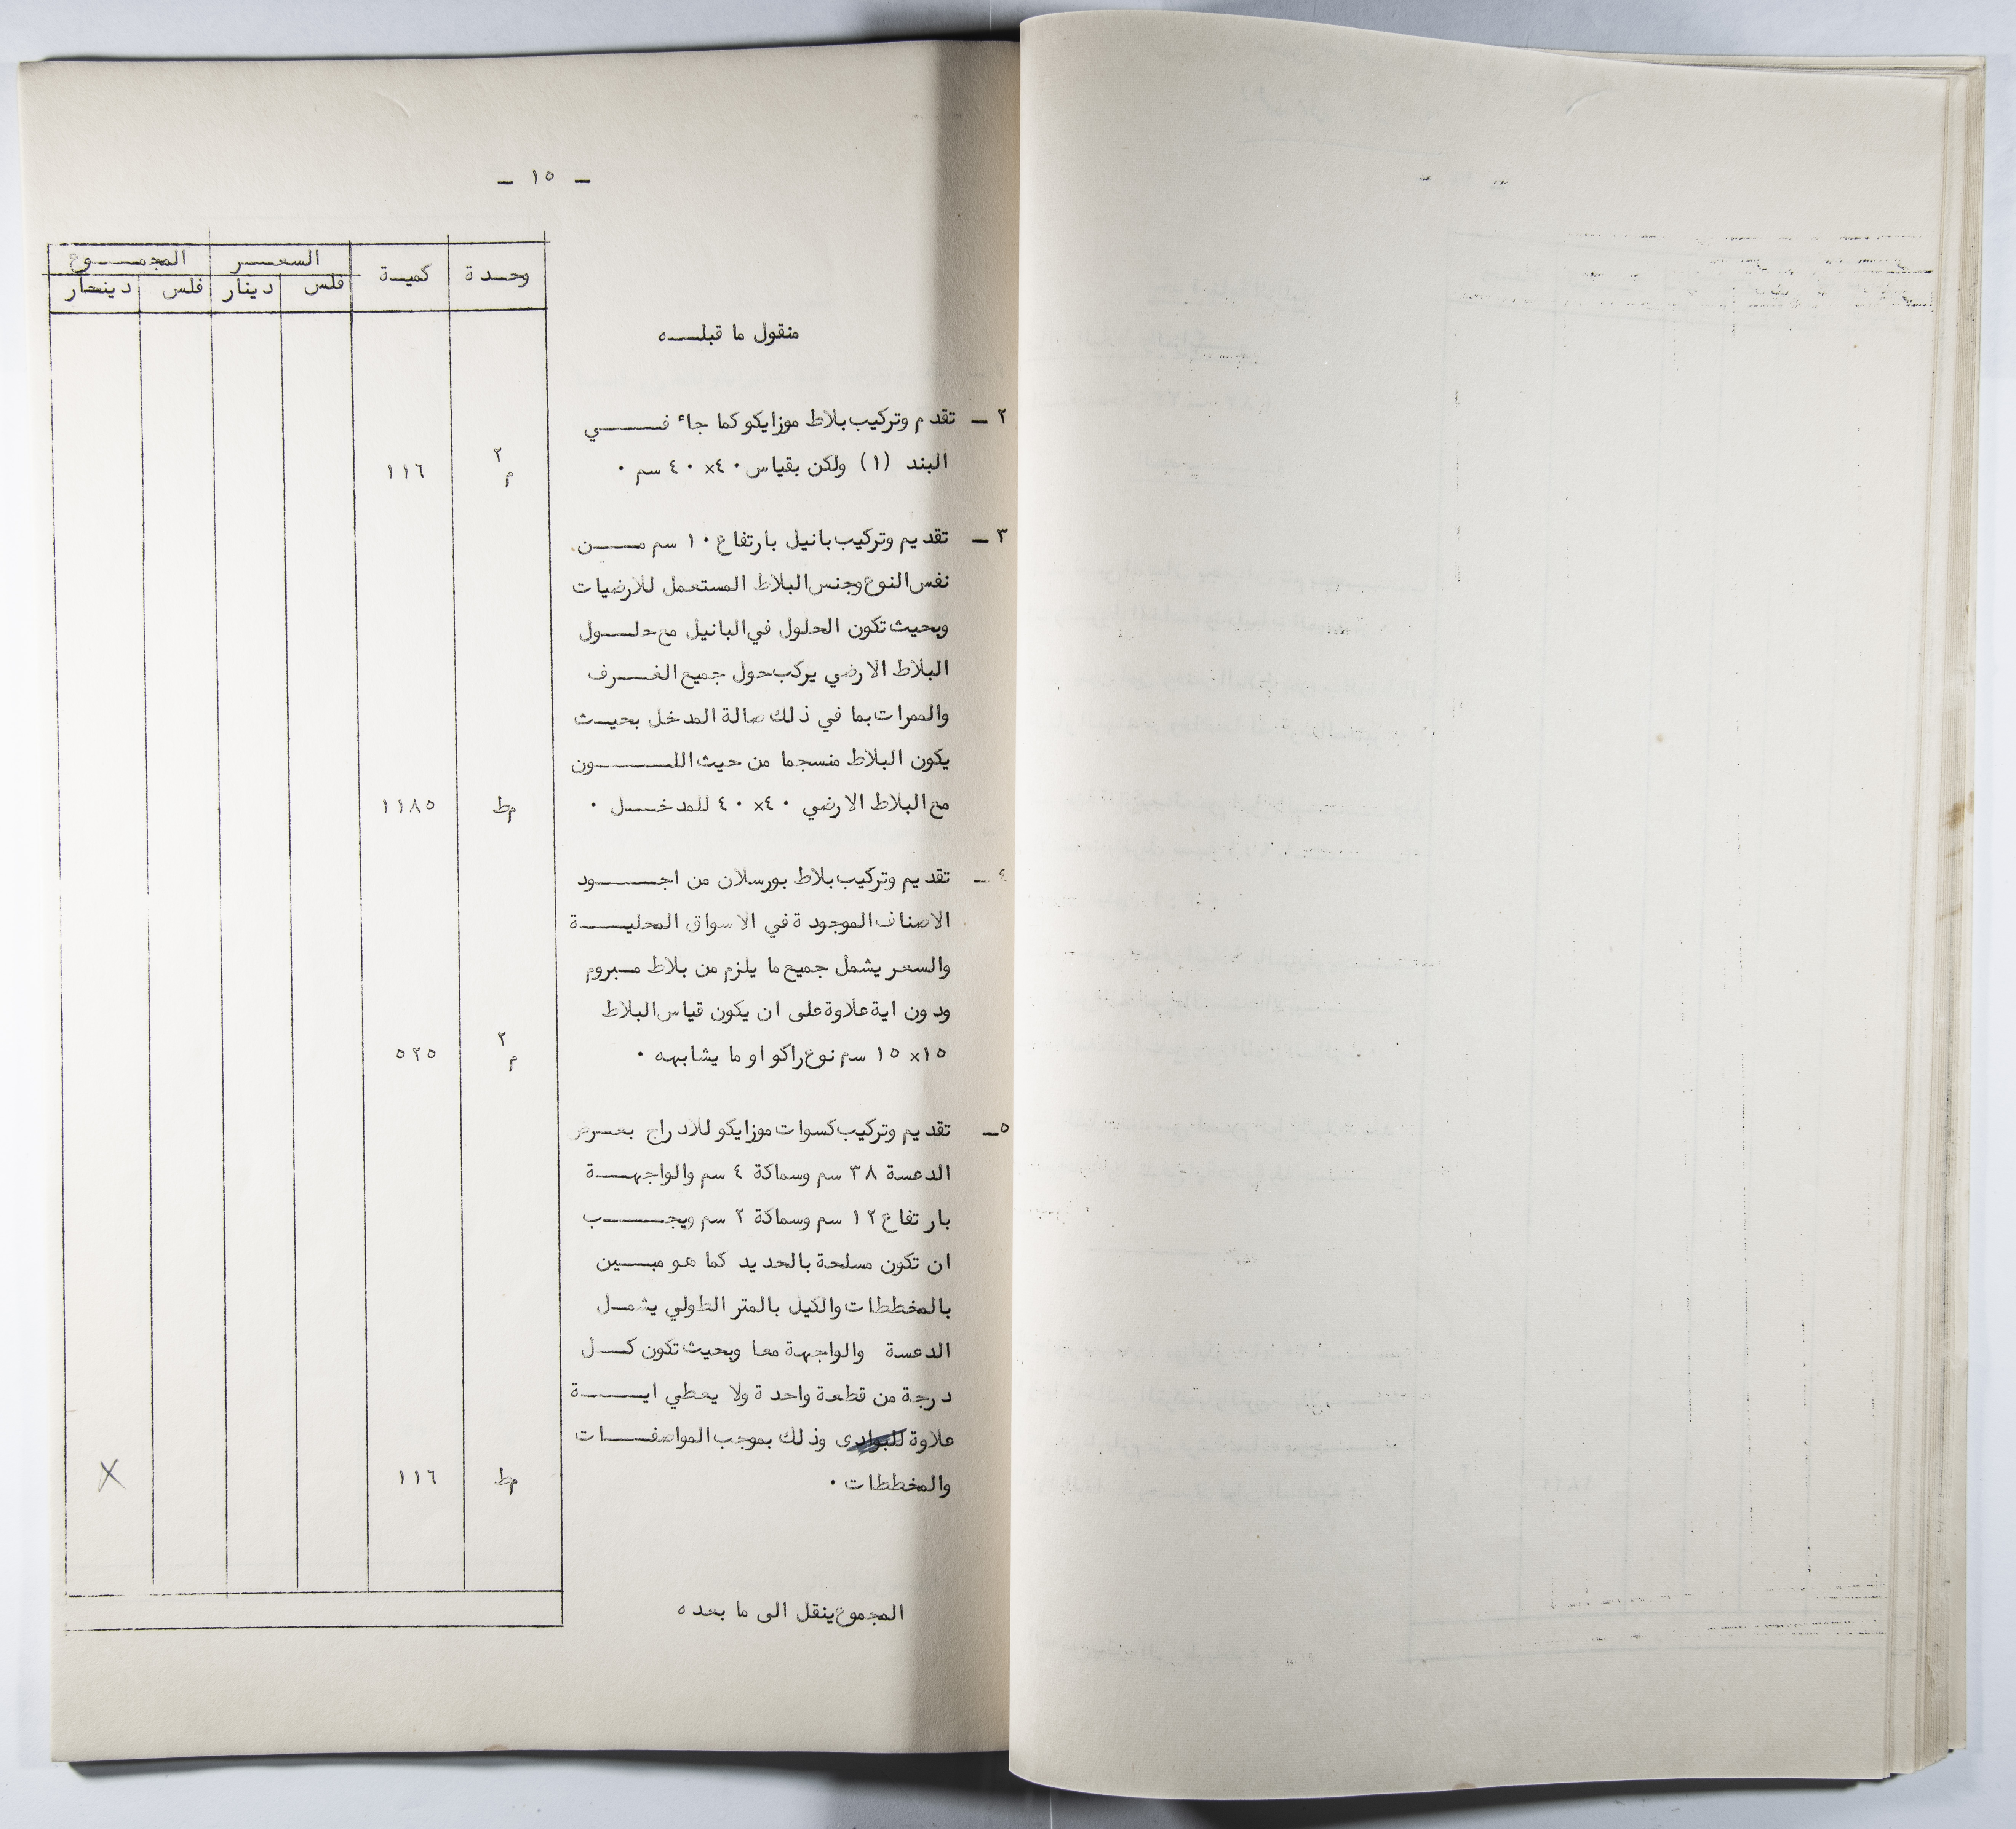 - ١٥ -
وحدة كمية السعر المجموع
فلس دينار فلس دينحار
منقول ما قبله
٢ - تقدم وتركيب بلاط موزايكو كما جاء في
البند (١) ولكن بقياس ٤٠×٤٠ سم . م٢ ١١٦
٣ - تقديم وتركيب بانيل بارتفاع ١٠ سم من
نفس النوع وجنس البلاط المستعمل للارضيات
وبحيث تكون الحلول في البانيل مع حلول
البلاط الارضي يركب حول جميع الغرف
والممرات بما في ذلك صالة المدخل بحيث
يكون البلاط منسجما من حيث اللون
مع البلاط الارضي ٤٠×٤٠ للمدخل . م٠ط ١١٨٥
٤ - تقديم وتركيب بلاط بورسلان من اجود
الاصناف الموجودة في الاسواق المحلية
والسعر يشمل جميع ما يلزم من بلاط مبروم
ودون اية علاوة على ان يكون قياس البلاط
١٥×١٥ سم نوع راكو او ما يشابهه . م٢ ٥٢٥
٥ - تقديم وتركيب كسوات موزايكو للادراج بعرض
الدعسة ٣٨ سم وسماكة ٤ سم والواجهة
بارتفاع ١٢ سم وسماكة ٢ سم ويجب
ان تكون مسلحة بالحديد كما هو مبين
بالمخططات والكيل بالمتر الطولي يشمل
الدعسة والواجهة معا وبحيث تكون كل
درجة من قطعة واحدة ولا يعطي اية
علاوة للبوادى وذلك بموجب المواصفات
والمخططات . م٠ط ١١٦ X
المجموع ينقل الى ما بعده